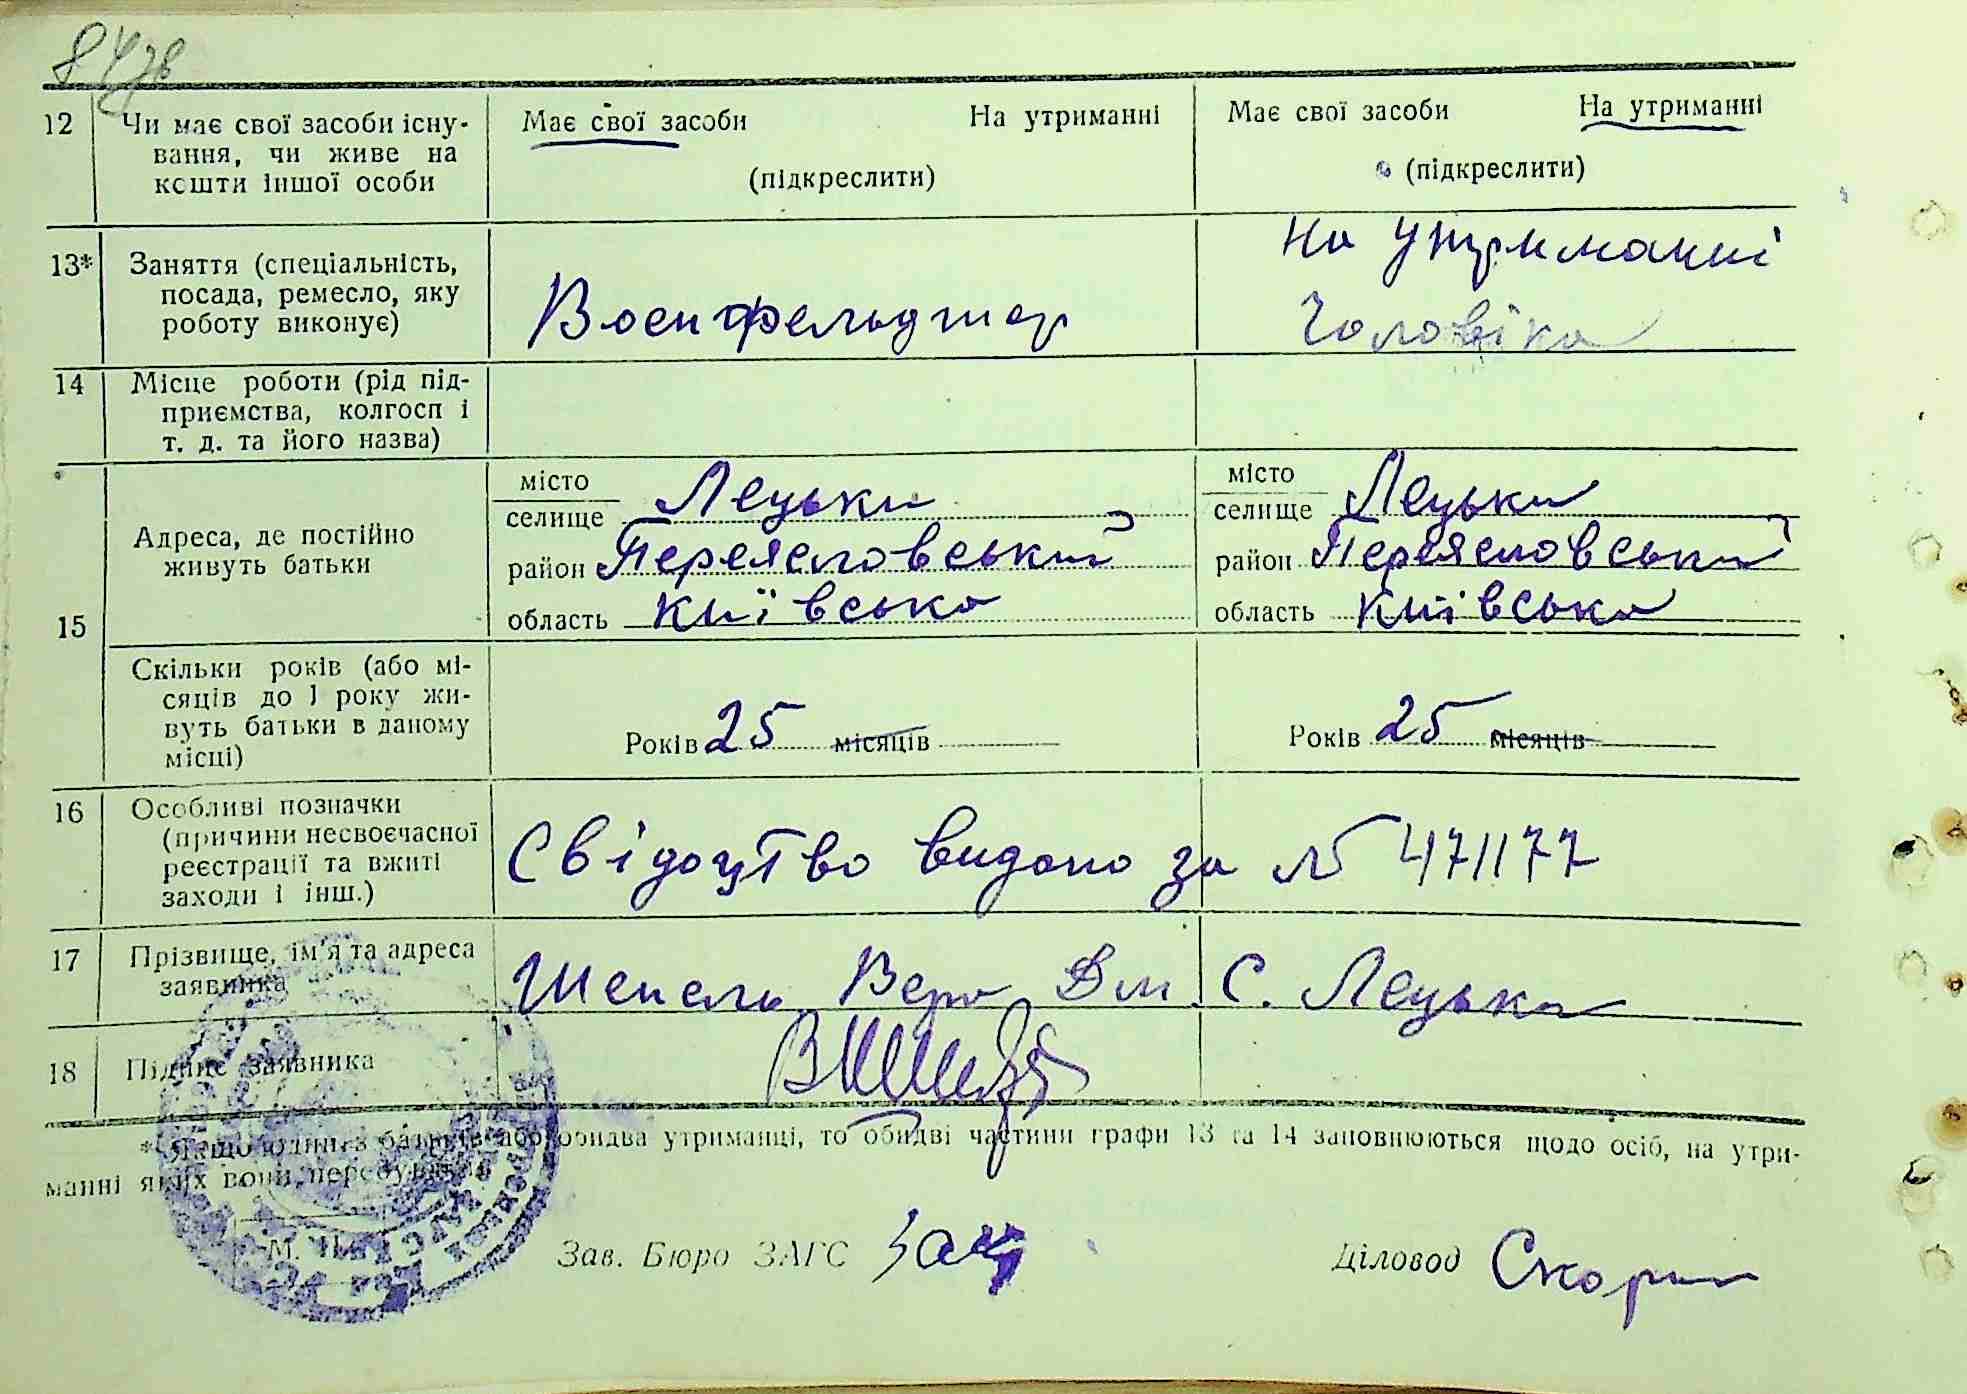 847зв
12 Чи має свої засоби існу- Має свої засоби На утриманні Має свої засоби На утриманні
вання, чи живе на
кошти іншої особи (підкреслити) (підкреслити)
На утриманні
13* Заняття (спеціальність,
посада, ремесло, яку Военфельдшер Чоловіка
роботу виконує)
14 Місце роботи (рід під-
приємства, колгосп і
т. д. та його назва)
місто місто
селище Лецьки селище Лецьки
Адреса, де постійно
живуть батьки район Переяславський район Переяславський
15 область Київська область Київська
Скільки років (або мі-
сяців до 1 року жи-
вуть батьки в даному Років 25 місяців Років 25 місяців
місці)
16 Особливі позначки
(причини несвоєчасної
реєстрації та вжиті Свідоцтво видано за № 471177
заходи і інш.)
17 Прізвище, ім'я та адреса
заявника Шепель Вера Дм С. Лецьки
18 Підпис заявника
* Якщо один з батьків або обидва утриманці, то обидві частини графи 13 та 14 заповнюються щодо осіб, на утри-
манні яких вони перебувають
М. П.
Зав. Бюро ЗАГС Діловод